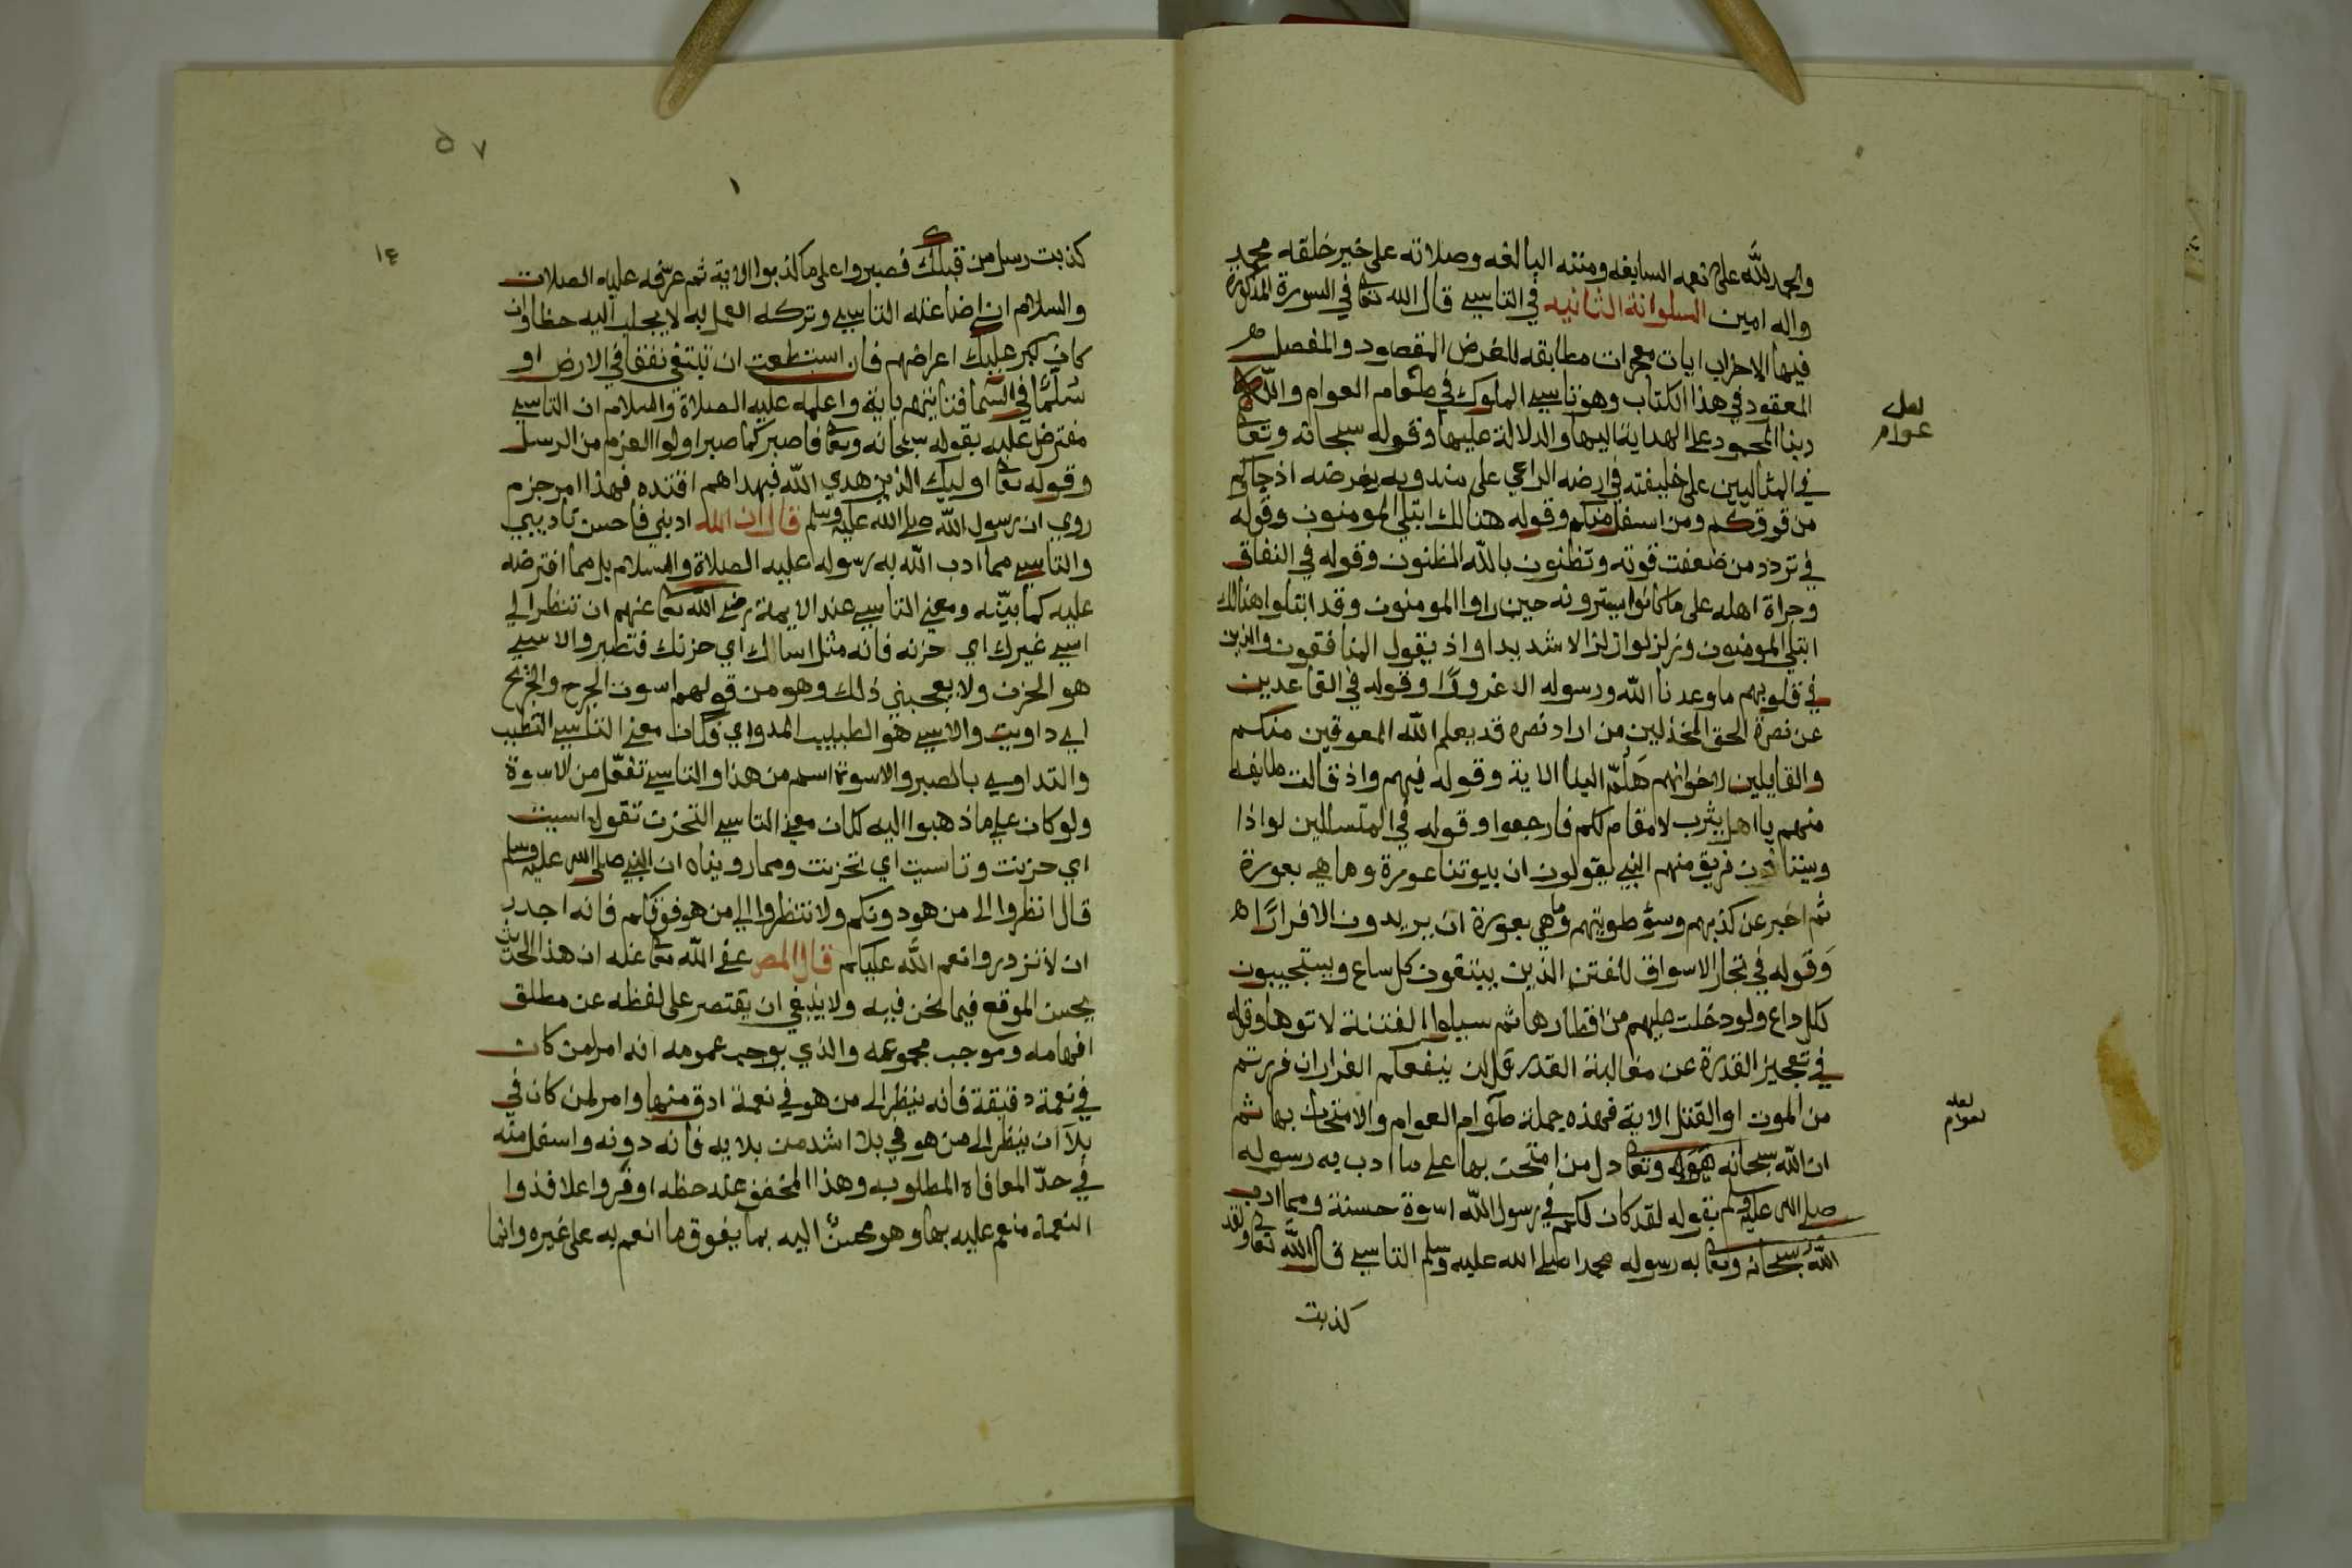 والحمد لله على نعمه السابغه ومننه البالغه وصلاته على خير خلقه محمد
واله امين السلوانة الثانيه في التاسي قال الله تعا في السورة المذكورة
فيها الاحزاب ايات معجزات مطابقه للغرض المقصود والمفصل
المعقود في هذا الكتاب وهو تاسي الملوك في طعام العوام والله
ربنا المحمود على الهداية اليها والدلالة عليها وقوله سبحانه وتعا
في المثالبين على خليفته في ارضه الراعي على مندوبه بفرضه اذ جاكم
من فوقكم ومن اسفل منكم وقوله هنالك ابتلي المومنون وقوله
في تردد من ضعفت قوته وتظنون بالله الظنون وقوله في النفاق
وجراة اهله على ما كانوا يسترونه حين راوا المومنون وقد ابتلوا هنالك
ابتلي المومنون وزلزلوا زلزالا شديدا واذ يقول المنافقون والذين
في قلوبهم ما وعدنا الله ورسوله الا غرورًا وقوله في القاعدين
عن نصرة الحق المخذلين من اراد نصره قد يعلم الله المعوقين منكم
والقايلين لاخوانهم هَلُمّ الينا الاية وقوله فيهم واذ قالت طايفه
منهم يا اهل يثرب لا مقام لكم فارجعوا وقوله في المتسللين لواذا
ويستاذن فريق منهم النبي يقولون ان بيوتنا عورة وما هي بعورة
ثم اخبر عن كذبهم وسوٴ طويتهم وما هي بعورة ان يريدون الا فرارًا ه
وَقوله في تجار الاسواق للفتن الذين ييتقون كل ساع ويستجيبون
لكل داع ولو دخلت عليهم من اقطارها ثم سيلوا الفتنة لاتوها وقوله
في تعجيز القدرة عن مغالبة القدر قل لن ينفعكم الفرار ان فررتم
من الموت او القتل الاية فهذه جملة طوام العوام والامتحان بها ثم
ان الله سبحانه وتعا دل من امتحن بها على ما ادب به رسوله
صلى الله عليه وسلم بقوله لقد كان لكم في رسول الله اسوة حسنة ومما ادب
الله سبحانه وتعا به رسوله محمدا صلى الله عليه وسلم التاسي قال الله تعا ولقد
كذبت
لعله
عوام
لعله
لعوام
٥٧
١
١٤
كذبت رسل من قبلك فصبروا على ما كذبوا الاية ثم عرّفه عليه الصلات
والسلام ان اضاعته التاسي وتركه العمل به لا يجلب اليه حظا وان
كان كبر عليك اعراضهم فان استطعت ان تبتغي نفقا في الارض او
سُلَّمًا في السّما فتاتيهم باية واعلمه عليه الصلاة والسلام ان التاسي
مفترض عليه بقوله سبحانه وتعا فاصبر كما صبر اولوا العزم من الرسل
وقوله تعا اوليك الذين هدي الله فبهداهم اقتده فهذا امر جزم
روي ان رسول الله صلى الله عليه وسلم قال ان الله ادبني فاحسن تاديبي
والتاسي مما ادب الله به رسوله عليه الصلاة والسلام بل مما افترضه
عليه كما بيّنه ومعنى التاسي عند الايمة رضي الله تعا عنهم ان تنظر الي
اسي غيرك اي حزنه فانه مثل اساك اي حزنك فتصبر والاسي
هو الحزن ولا يعجبني ذلك وهو من قولهم اسوت الجرح والجريح
اي داويت والاسي هو الطبيب المدوي فكان معنى التاسي التطبب
والتداوي بالصبر والاسوة اسم من هذا والتاسي تفعّل من الاسوة
ولو كان على ما ذهبوا اليه لكان معنى التاسي التحزن تقول اسيت
اي حزنت وتاسيت اي تحزنت ومما رويناه ان النبي صلى الله عليه وسلم
قال انظروا الى من هو دونكم ولا تنظروا الى من هو فوقكم فانه اجدر
ان لا تزدروا نعم الله عليكم قال المص عفى الله تعا عنه ان هذا الحديث
يحسن الموقع فيما نحن فيه ولا ينبغي ان يقتصر على لفظه عن مطلق
افهامه وموجب مجموعه والذي يوجب عمومه انه امر لمن كان
في نعمة دقيقة فانه ينظر الى من هو في نعمة ادق منها وامر لمن كان في
بلآ ان ينظر الى من هو في بلا اشد من بلايه فانه دونه واسفل منه
في حدّ المعافاه المطلوب وهذا المخفف عنه حظه اوفر واعلا فذوا
النعمة منعم عليه بها وهو محسنٌ اليه بما يفوق ما انعم به على غيره وانما